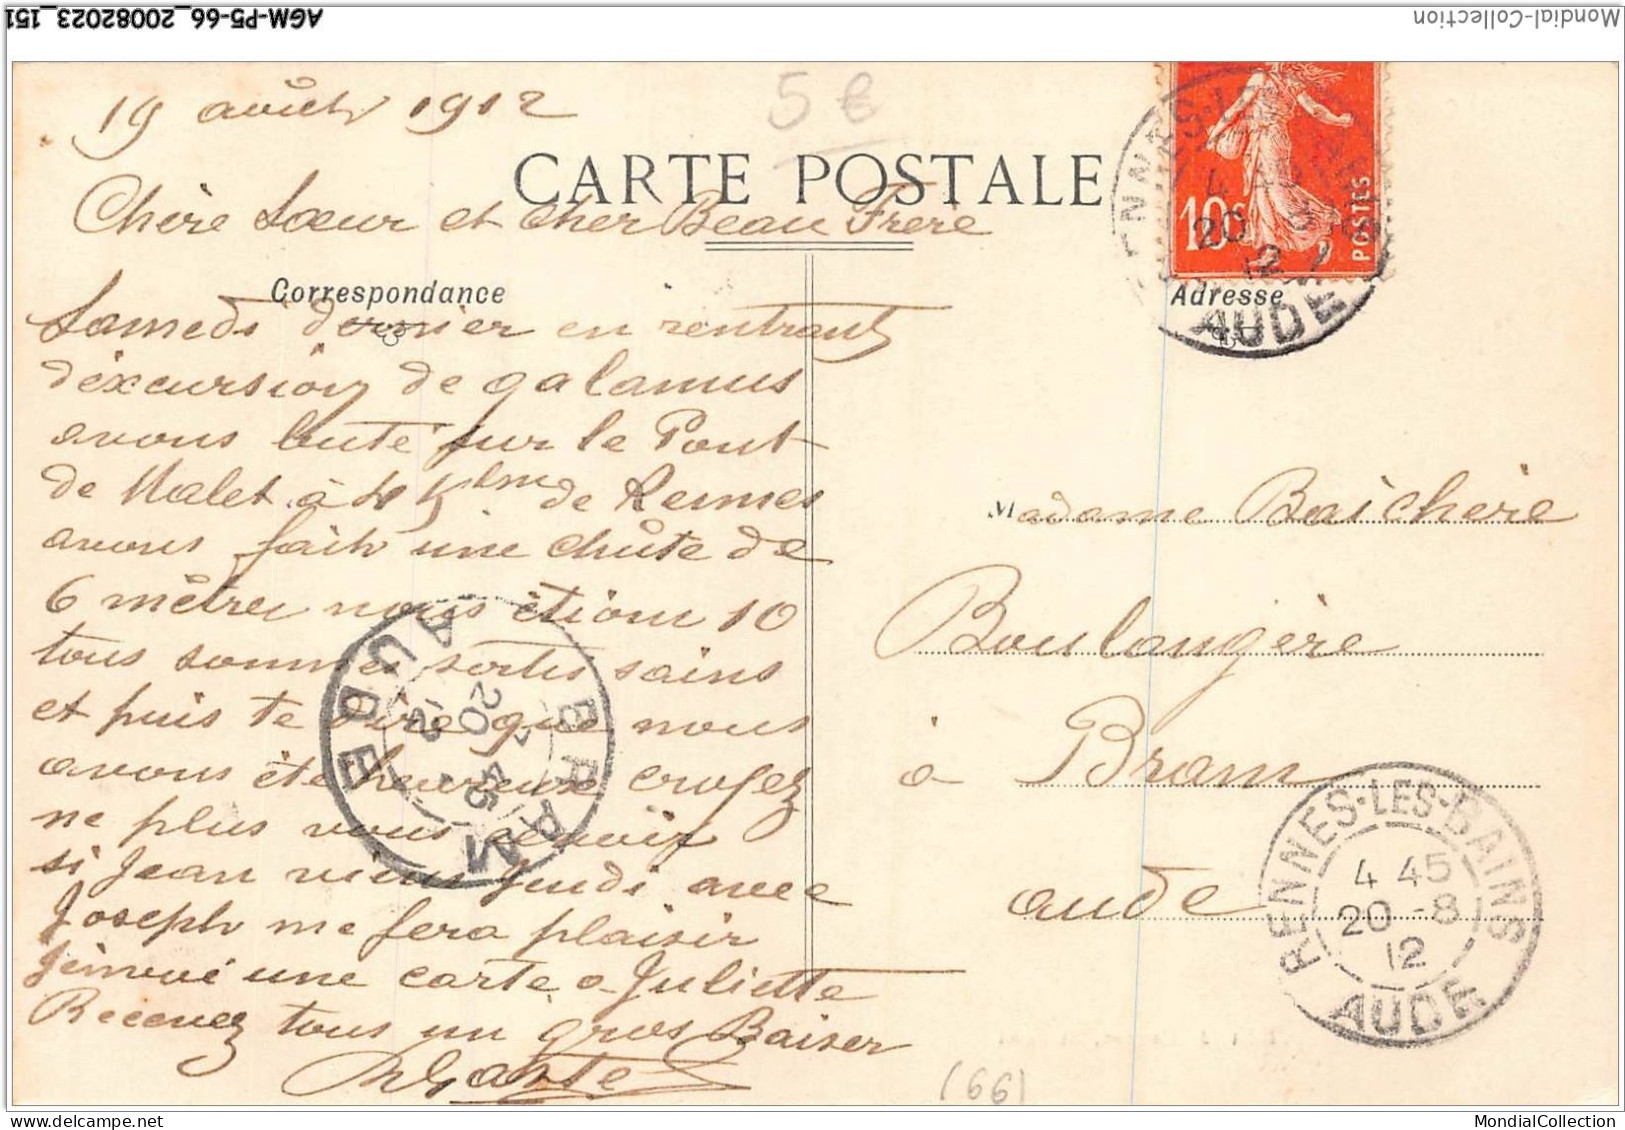 AGM-P5-66_20082023_151
Mondial-Collection
19 août 1912
5 €
CARTE POSTALE
Chère Sœur et cher Beau Frere
Correspondance
Adresse
10c
POSTES
RENNES-LES-BAINS
4 45
20 -8
12
AUDE
Samedi dernier en rentrant
d'éxcursion de galamus
avons buté sur le Pont
de Malet à 4 k de Rennes
avons fait une chûte de
6 mêtres nous étions 10
tous sommes sortis sains
et puis te dire que nous
avons été heureux croyez
ne plus vous revoir
si Jean viens Jeudi avec
Joseph me fera plaisir
J'envoi une carte a Juliette
Recevez tous un gros Baiser
Madame Baichère
Boulangère
à Bram
aude
BRAM
7 55
20 -8
12
AUDE
RENNES-LES-BAINS
4 45
20 -8
12
AUDE
(66)
MondialCollection
www.delcampe.net